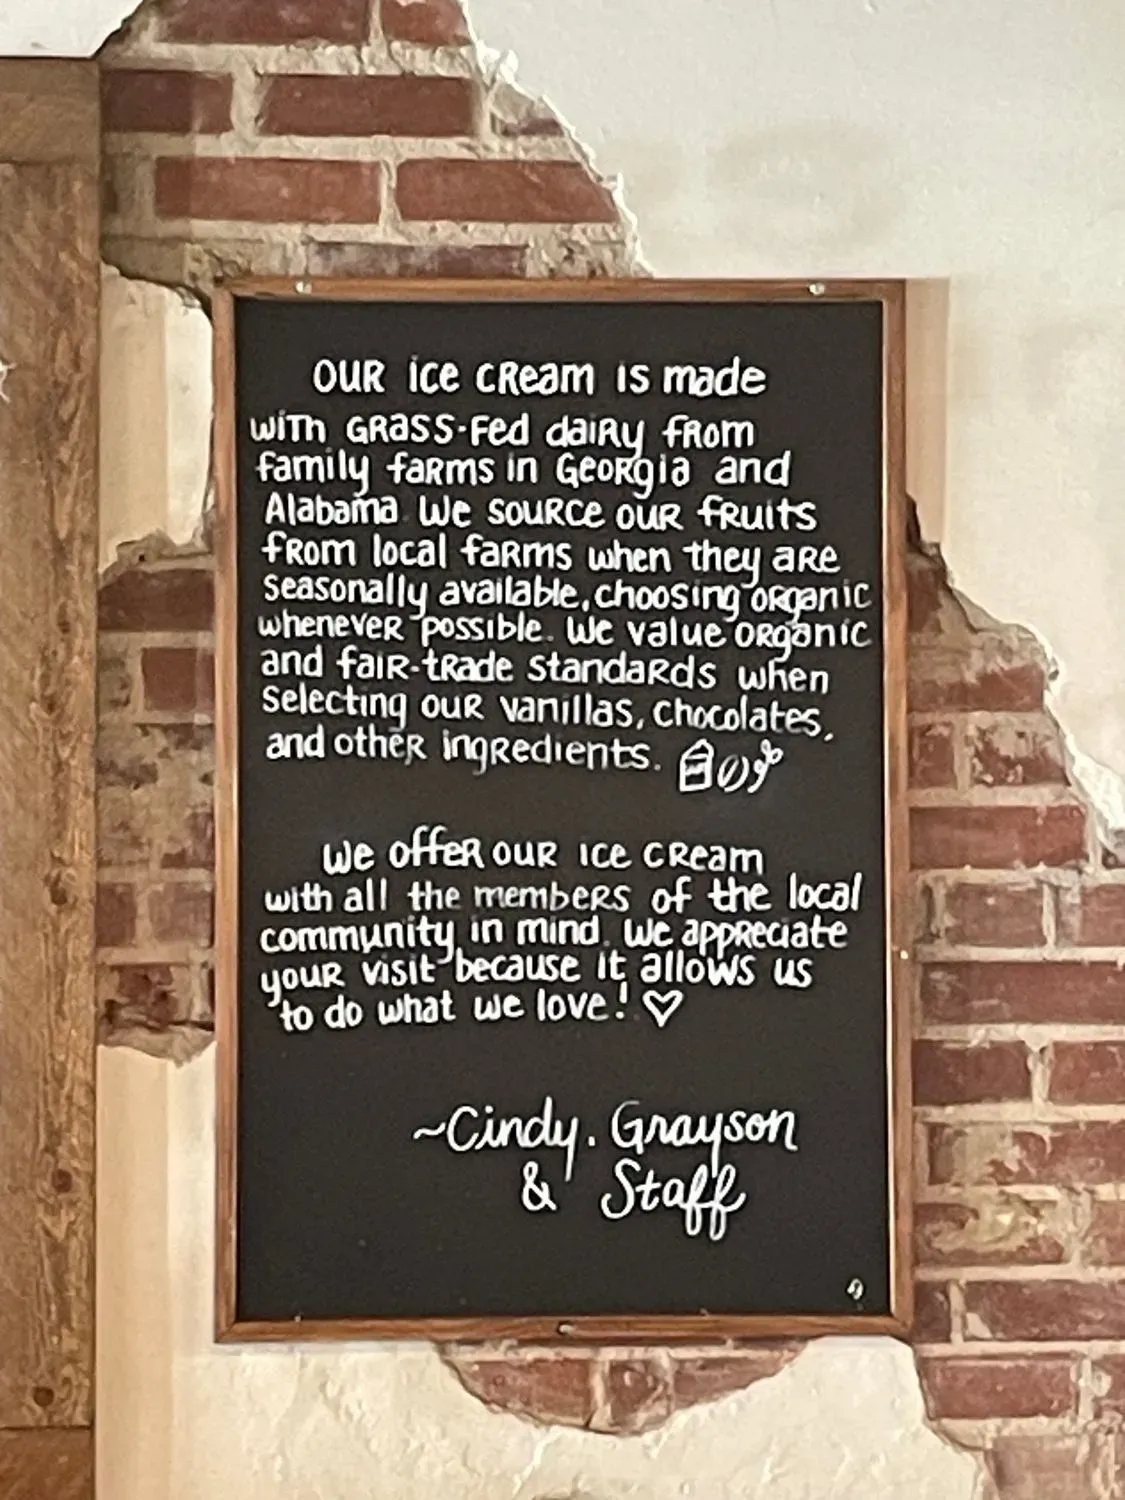 OUR ice cream is made
with Grass-Fed dairy from
family farms in Georgia and
Alabama. We source our fruits
from local farms when they are
seasonally available, choosing organic
whenever possible. We value organic
and fair-trade standards when
selecting our vanillas, chocolates,
and other ingredients.
We offer our ice cream
with all the members of the local
community in mind. We appreciate
your visit because it allows us
to do what we love! ♡
~Cindy. Grayson
& Staff